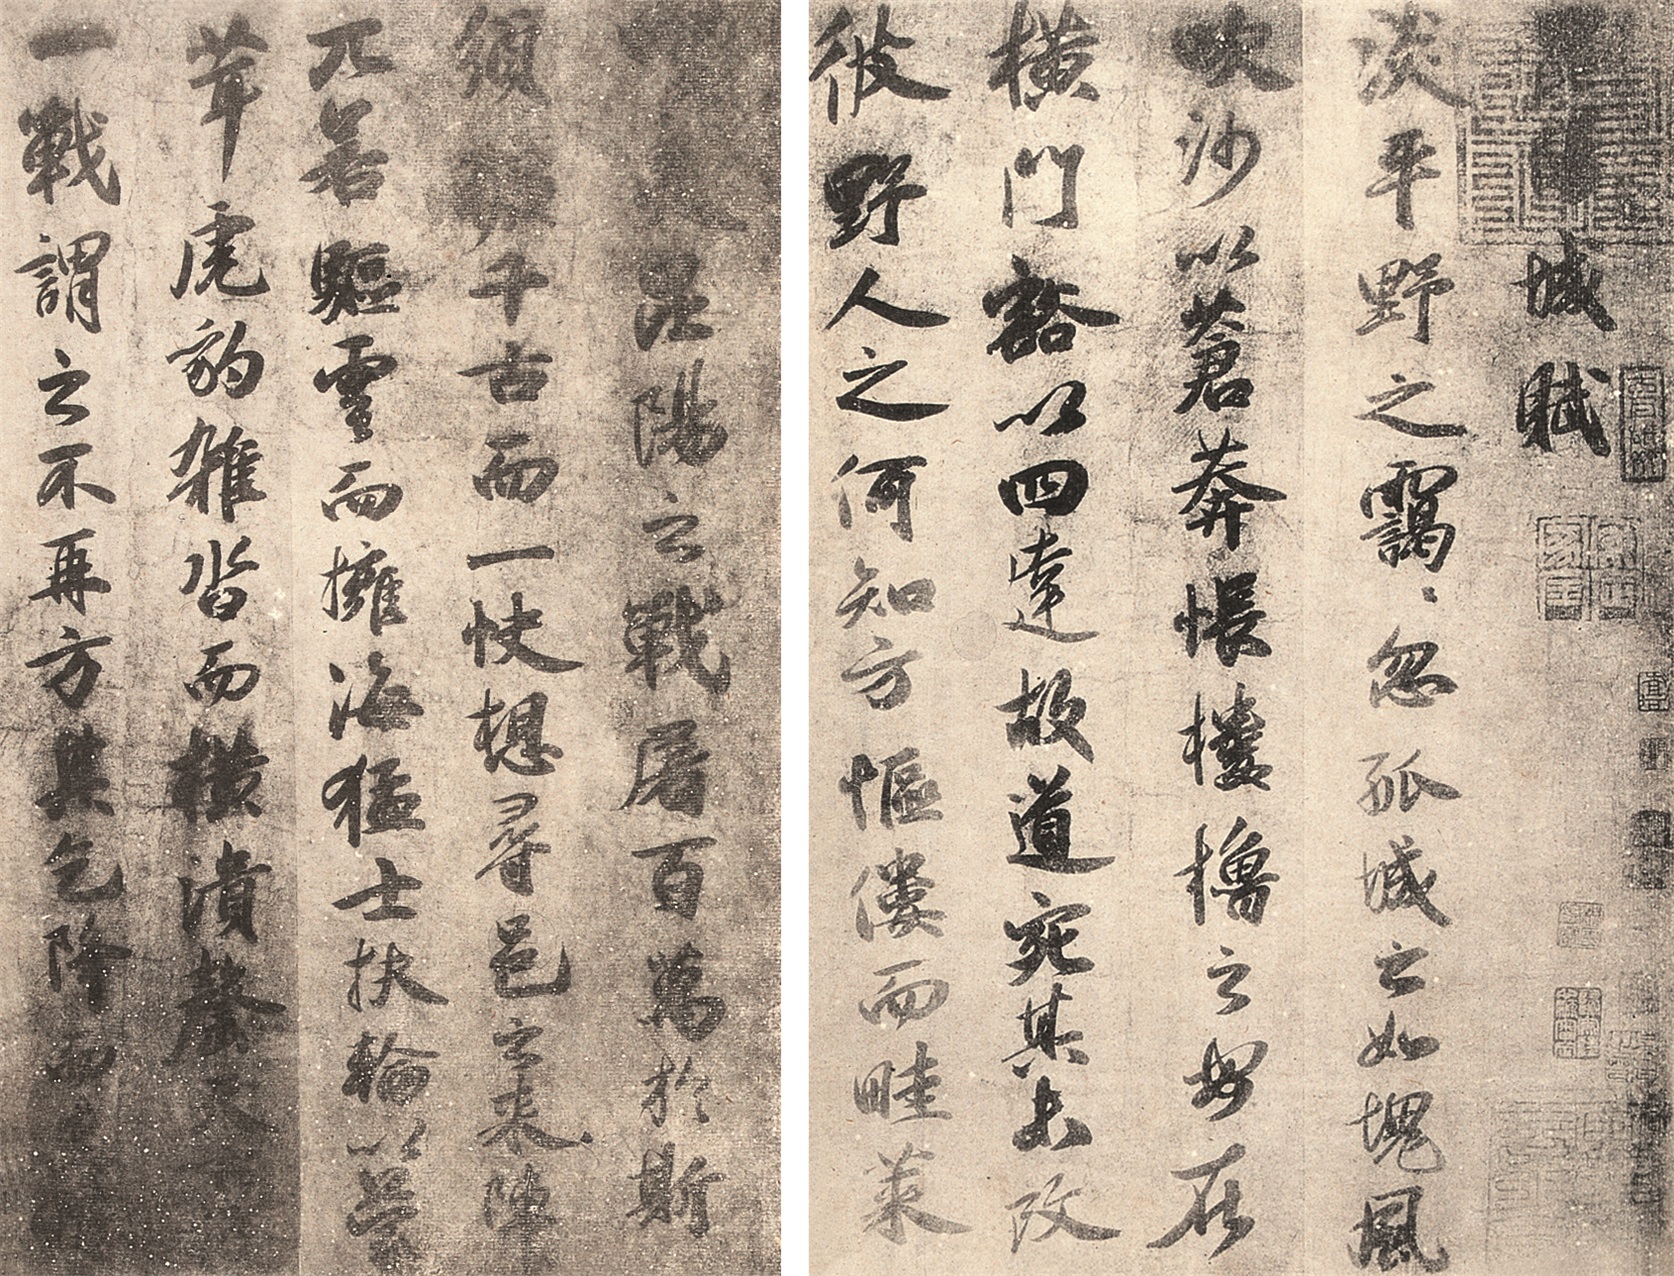 城賦
淡平野之靄〻忽孤城之如塊風
吹沙以蒼莽悵樓櫓之安在
橫門豁以四達故道宛其未改
彼野人之何知方傴僂而畦菜
昆陽之戰屠百萬於斯
須千古而一快想尋邑之來陣
兀若驅雲而擁海猛士扶輪以蒙
茸虎豹雜沓而橫潰罄天
一戰謂之不再方其乞降而